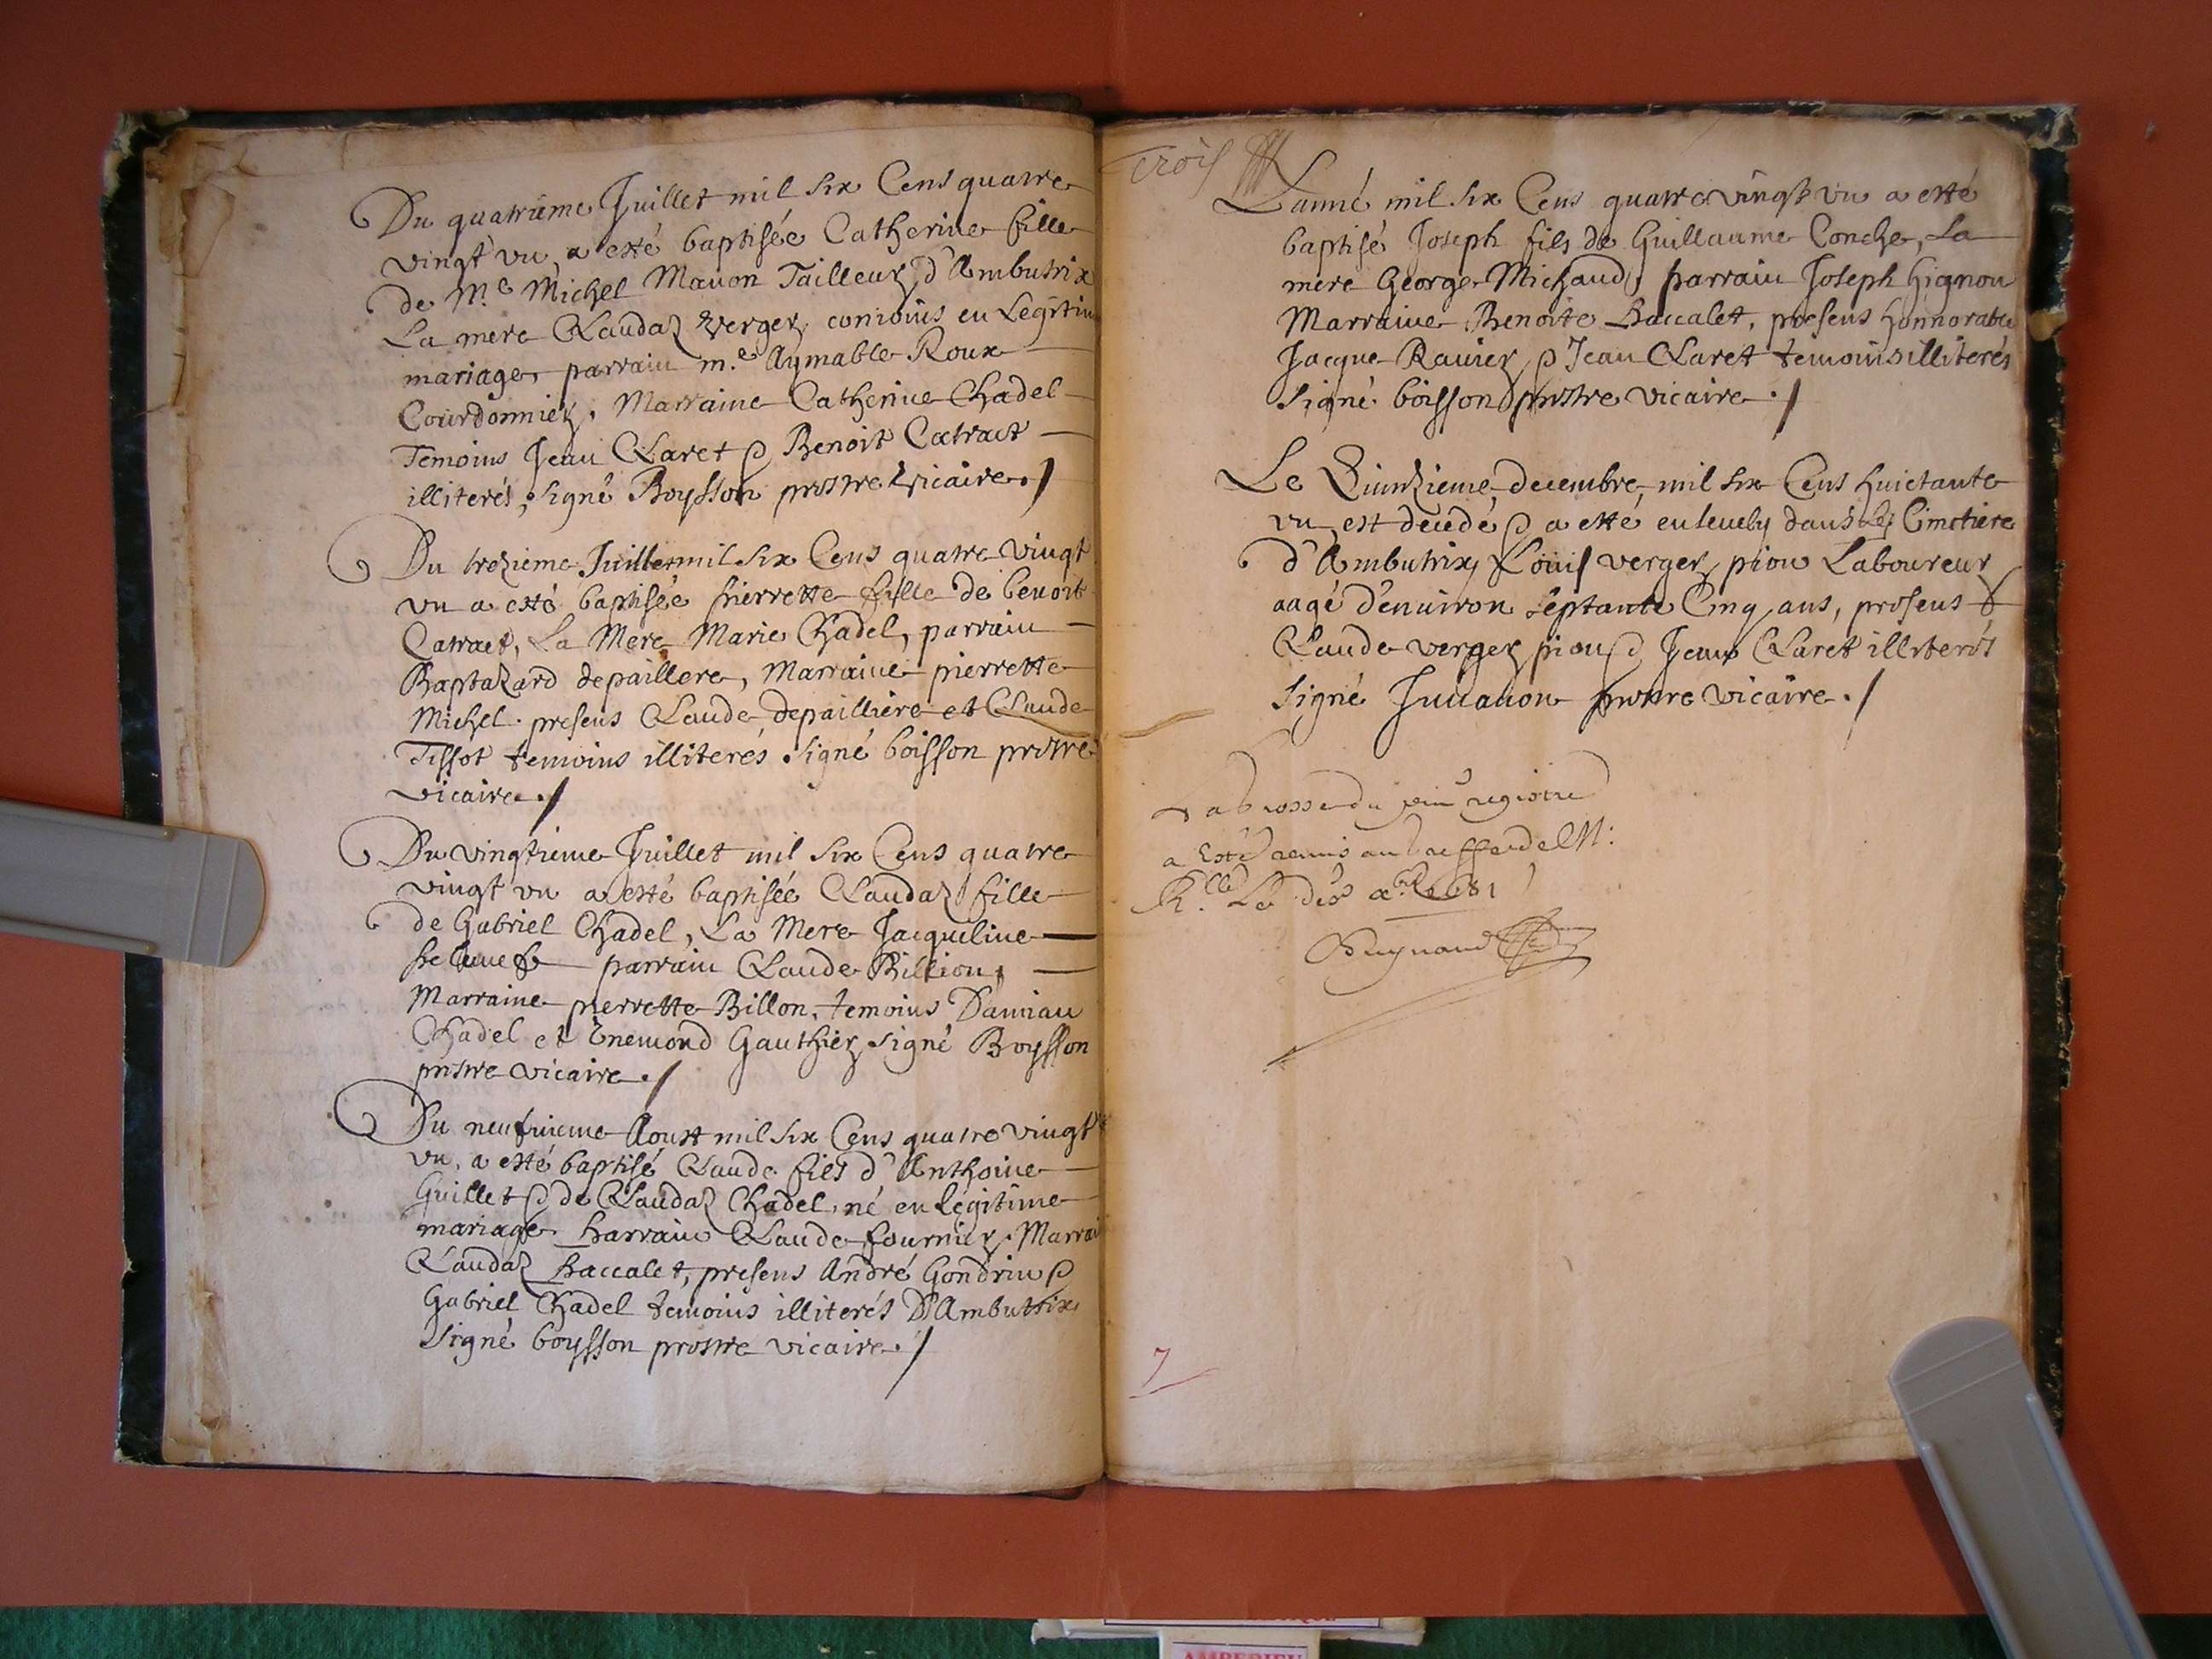 Du quatrieme Juillet mil six Cens quatre
vingt vn, a esté baptisée Catherine fille
de M.e Michel Mauon Tailleur, d'Ambutrix
La mere Claudaz Verger, conioins en Legitim
mariage, parrain m.e Aymable Roux
Courdonnier, Marraine Catherine Chadel
Temoins Jean Claret & Benoit Catract
illiterés, signé Boysson prestre Vicaire./
Du trezieme Juillet mil six Cens quatre vingt
vn a esté baptisée pierrette fille de benoit
Catract, La Mere Marie Chadel, parrain
Baptazard depaillere, Marraine pierrette
Michel. presens Claude depailliere et Claude
Tissot temoins illiterés. signé boisson prestre
vicaire./
Du vingtieme Juillet mil six Cens quatre
vingt vn a esté baptisée Claudaz fille
de Gabriel Chadel, La Mere Jacqueline
parrain Claude Billion,
Marraine pierrette Billon, temoins Damian
Chadel et Enemond Gauthier, signé Boysson
prestre vicaire./
Du neufuieme Aoust mil six Cens quatre vingt
vn, a esté baptisé Claude fils d'Anthoine
Guillet & de Claudaz Chadel, né en legitime
mariage parrain Claude fournier, Marrai
Claudaz baccalet, presens André Gondrin &
Gabriel Chadel temoins illiterés D'Ambutrix
signé boysson prestre vicaire./
Trois
Lanné mil six Cens quatre vingt vn a esté
baptisé Joseph fils de Guillaume Conche, La
mere George Michaud, parrain Joseph hignon
Marraine Benoite baccalet, presens honnorable
Jacque Rauier & Jean Claret temoins illiterés
signé boisson prestre vicaire./
Le Quinzieme decembre mil six Cens huictante
vn est décedé & a esté enseuely dans Le Cimetiere
d'Ambutrix, Louis verger, pion Laboureur
aagé d'enuiron septante Cinq ans, presens
Claude verger pion & Jean Claret illiterés
signé Juuanon prestre vicaire./
la grosse du registre
a Esté remis au greffe de M:
1681
7